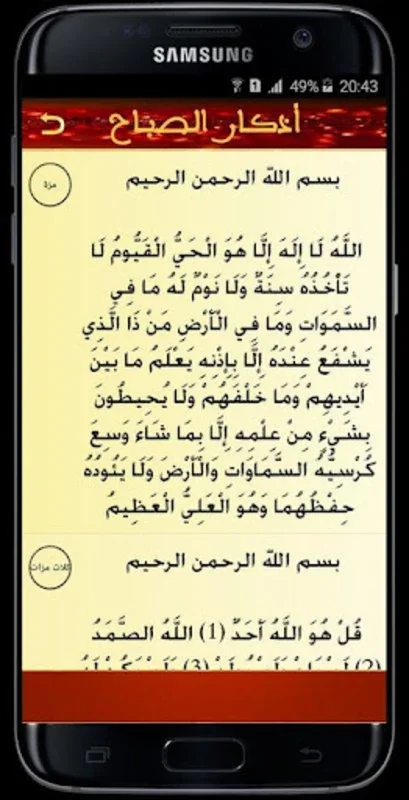 SAMSUNG
1 49% 20:43
أذكار الصباح
مرة
بسم اللّه الرحمن الرحيم
اللَّهُ لَا إِلَهَ إِلَّا هُوَ الْحَيُّ الْقَيُّومُ لَا
تَأْخُذُهُ سِنَةٌ وَلَا نَوْمٌ لَهُ مَا فِي
السَّمَوَاتِ وَمَا فِي الْأَرْضِ مَنْ ذَا الَّذِي
يَشْفَعُ عِنْدَهُ إِلَّا بِإِذْنِهِ يَعْلَمُ مَا بَيْنَ
أَيْدِيهِمْ وَمَا خَلْفَهُمْ وَلَا يُحِيطُونَ
بِشَيْءٍ مِنْ عِلْمِهِ إِلَّا بِمَا شَاءَ وَسِعَ
كُرْسِيُّهُ السَّمَاوَاتِ وَالْأَرْضَ وَلَا يَئُودُهُ
حِفْظُهُمَا وَهُوَ الْعَلِيُّ الْعَظِيمُ
ثلاث مرات
بسم اللّه الرحمن الرحيم
قُلْ هُوَ اللَّهُ أَحَدٌ (1) اللَّهُ الصَّمَدُ
(2) لَمْ يَلِدْ وَلَمْ يُولَدْ (3) وَلَمْ يَكُنْ لَهُ